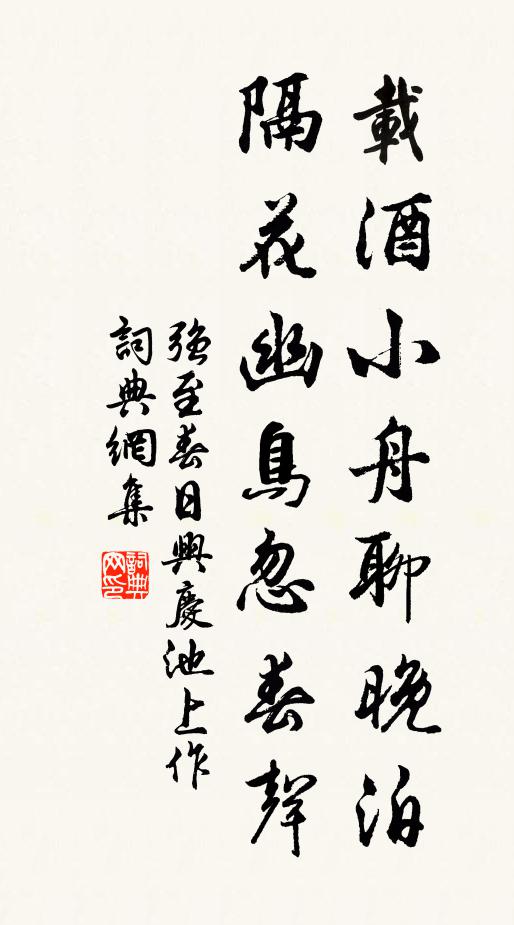 載酒小舟聊晚泊
隔花幽鳥忽春聲
強至春日興慶池上作
詞典網集
詞典
网印